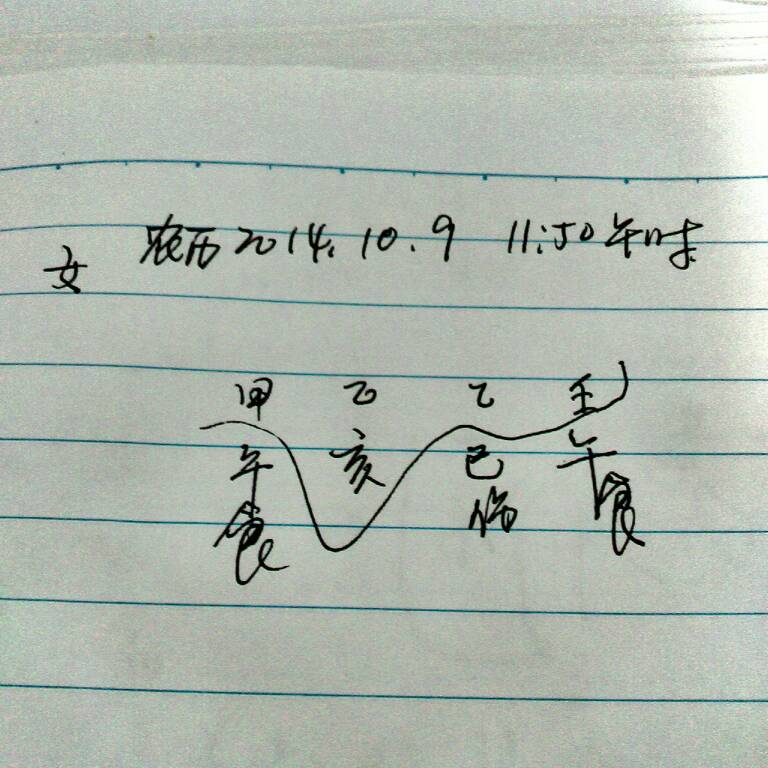 农历2014.10.9 11:50午时
女
甲 乙 乙 壬
午 亥 巳 午
食 伤 食